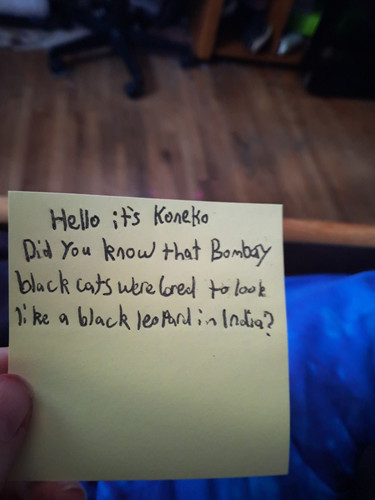 Hello it's Koneko
Did you know that Bombay
black cats were bred to look
like a black leopard in India?